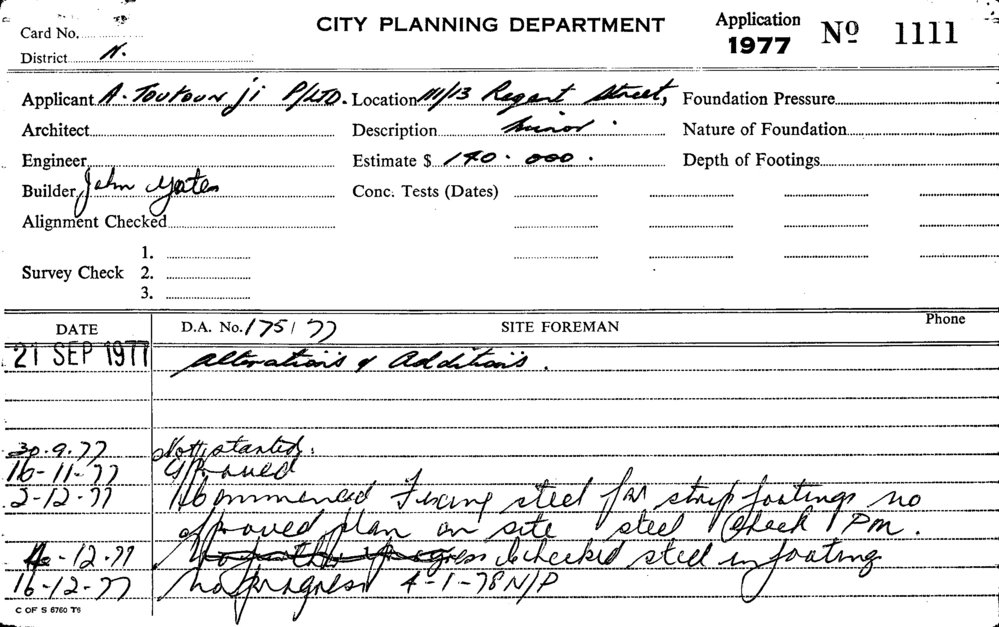 CITY PLANNING DEPARTMENT
Application 1977 Nº 1111
Card No.
District N.
Applicant A. Toutounji P/LTD. Location 111/13 Regent Street, Foundation Pressure
Architect Description Minor. Nature of Foundation
Engineer Estimate $ 140.000. Depth of Footings
Builder John Yates Conc. Tests (Dates)
Alignment Checked
1.
Survey Check 2.
3.
DATE D.A. No. 175/77 SITE FOREMAN Phone
21 SEP 1977 Alterations & Additions.
30.9.77 Not started.
16-11-77 Approved
2-12-77 Commenced Fixing steel for strip footings no
approved plan on site steel Check PM.
-12-77 progress Checked steel in footing
16-12-77 No progress 4-1-78 N/P
C OF S 6760 T6